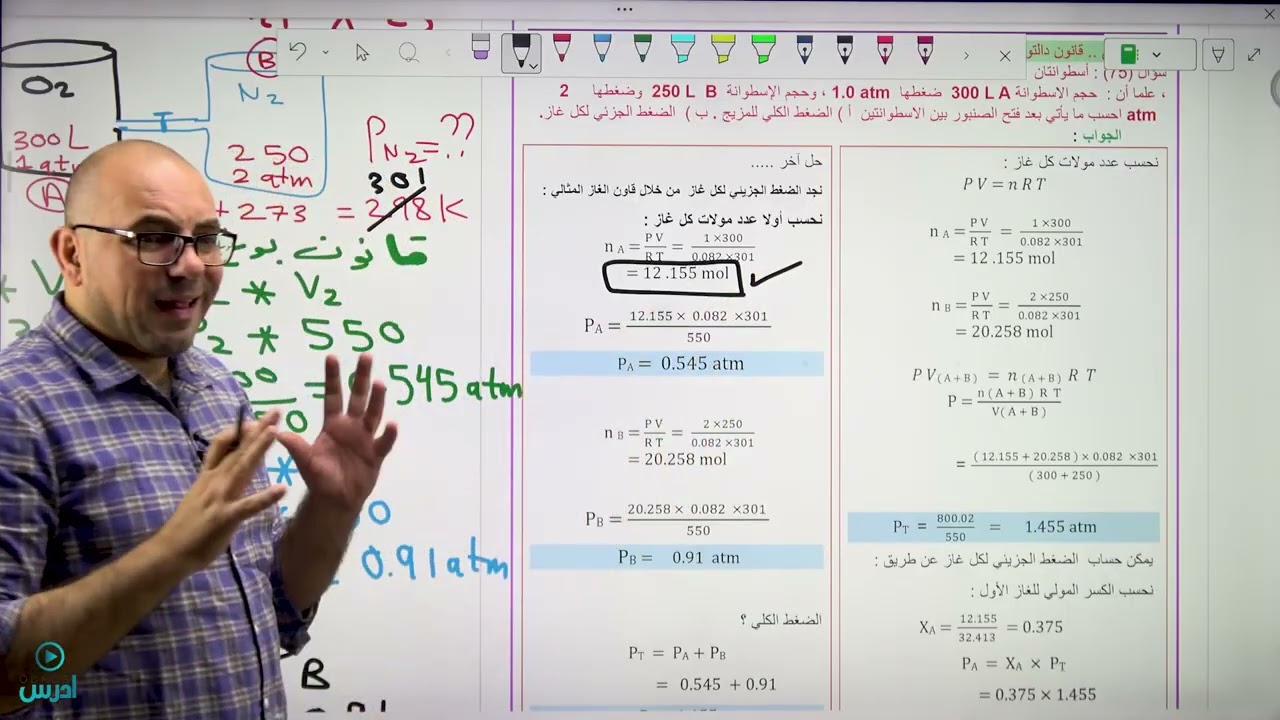 .. قانون دالتو
سؤال (75) : أسطوانتان
، علما أن : حجم الاسطوانة 300 L A ضغطها 1.0 atm ، وحجم الإسطوانة 250 L B وضغطها 2
atm احسب ما يأتي بعد فتح الصنبور بين الاسطوانتين أ ) الضغط الكلي للمزيج . ب ) الضغط الجزئي لكل غاز.
الجواب :
نحسب عدد مولات كل غاز :
P V = n R T
n A = P V / R T = 1 ×300 / 0.082 ×301
= 12.155 mol
n B = P V / R T = 2 ×250 / 0.082 ×301
= 20.258 mol
P V(A+B) = n (A+B) R T
P = n ( A + B ) R T / V(A + B )
= ( 12.155 + 20.258 ) × 0.082 ×301 / ( 300 + 250 )
PT = 800.02 / 550 = 1.455 atm
يمكن حساب الضغط الجزيئي لكل غاز عن طريق :
نحسب الكسر المولي للغاز الأول :
XA = 12.155 / 32.413 = 0.375
PA = XA × PT
= 0.375 × 1.455
حل آخر .....
نجد الضغط الجزيئي لكل غاز من خلال قاون الغاز المثالي :
نحسب أولا عدد مولات كل غاز :
n A = P V / R T = 1 ×300 / 0.082 ×301
= 12 .155 mol
PA = 12.155 × 0.082 ×301 / 550
PA = 0.545 atm
n B = P V / R T = 2 ×250 / 0.082 ×301
= 20.258 mol
PB = 20.258 × 0.082 ×301 / 550
PB = 0.91 atm
الضغط الكلي ؟
PT = PA + PB
= 0.545 + 0.91
O2
B
N2
300 L
1 atm
A
250
2 atm
PN2 = ??
301
+ 273 = 298 K
قانون بو
* V2
2 * 550
= 545 atm
*
0.91 atm
B
ادرس